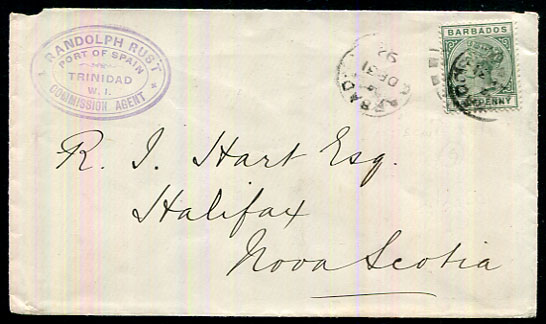 RANDOLPH RUST
PORT OF SPAIN
TRINIDAD
W. I.
COMMISSION AGENT
BARBADOS
PENNY
DE 31
92
R. J. Hart Esq.
Halifax
Nova Scotia